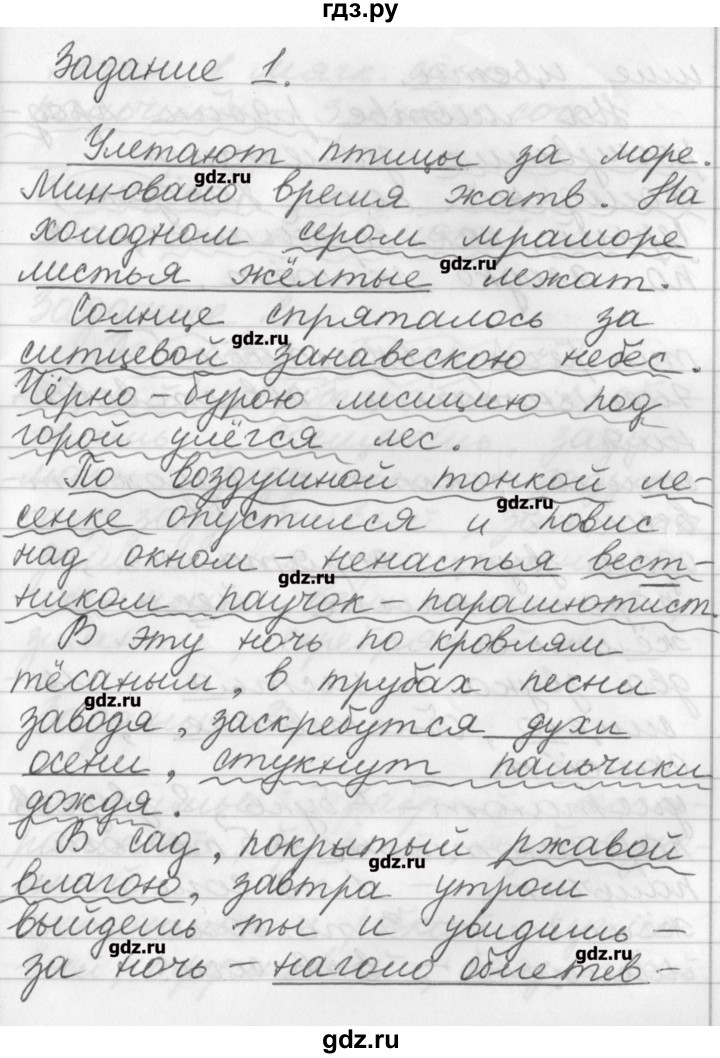 гдз.ру
Задание 1.
Улетают птицы за море.
gdz.ru
Миновало время жатв. На
холодном сером мраморе
gdz.ru
листья жёлтые лежат.
Солнце спряталось за
gdz.ru
ситцевой занавескою небес.
Чёрно-бурою лисицию под
горой улёгся лес.
По воздушной тонкой ле-
gdz.ru
сенке опустился и повис
над окном - ненастья вест-
gdz.ru
ником паучок - парашютист.
В эту ночь по кровлям
тёсаным, в трубах песни
gdz.ru
заводя, заскребутся духи
осени, стукнут пальчики
дождя.
В сад, покрытый ржавой
gdz.ru
влагою, завтра утром
выйдешь ты и увидишь -
gdz.ru
gdz.ru
за ночь - нагого облетев-
gdz.ru